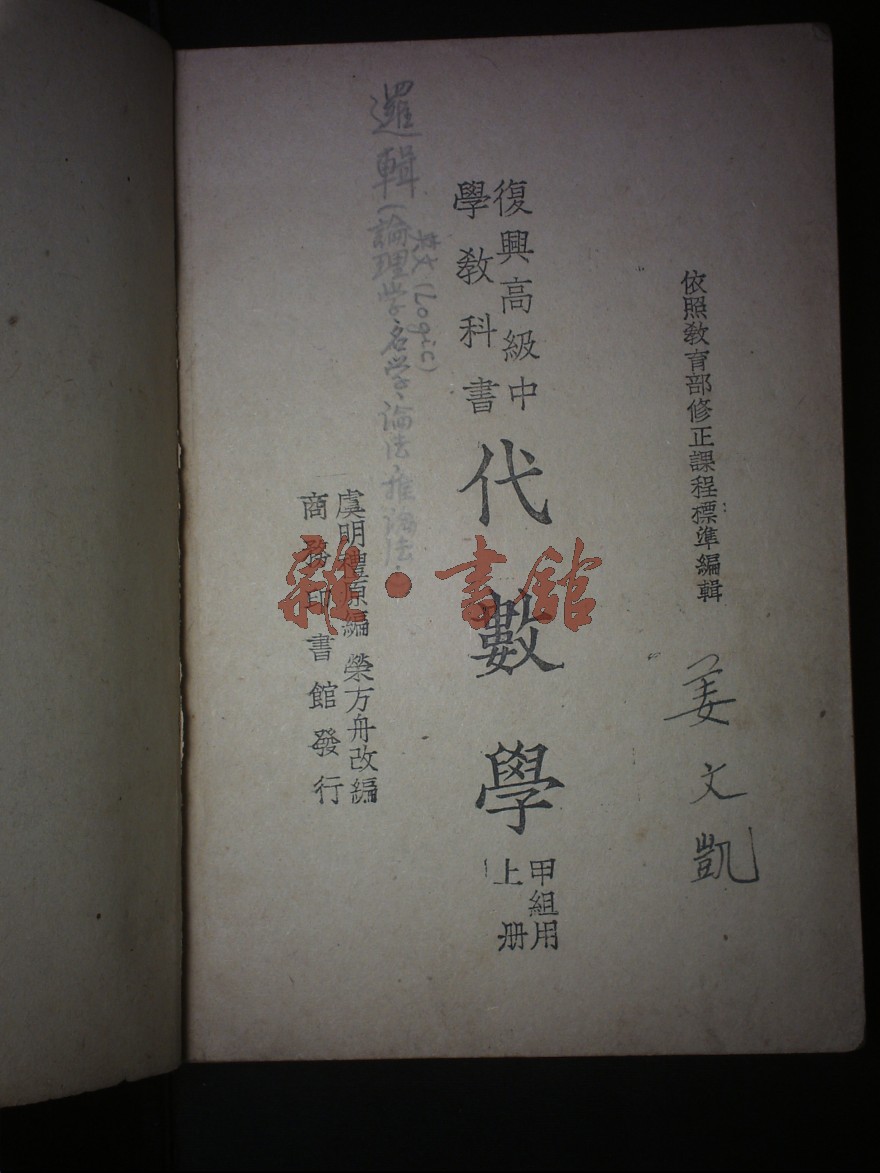 依照教育部修正課程標準編輯
姜文凱
復興高級中
學教科書
代數學
甲組用
上册
邏輯(論理学、名学、論法、推論法、)
英文(Logic)
虞明禮原編 榮方舟改編
商務印書館發行
雜·書館